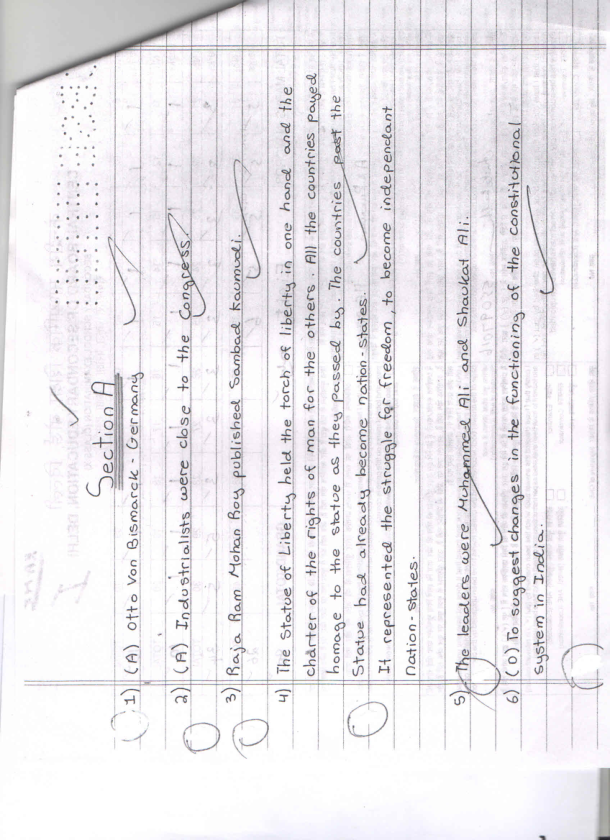 Section A
1) (A) Otto Von Bismarck - Germany
2) (A) Industrialists were close to the Congress.
3) Raja Ram Mohan Roy published Sambad Kaumudi.
4) The Statue of Liberty held the torch of liberty in one hand and the
charter of the rights of man for the others. All the countries payed
homage to the statue as they passed by. The countries past the
Statue had already become nation-states.
It represented the struggle for freedom, to become independant
nation-states.
5) The leaders were Muhammed Ali and Shaukat Ali.
6) (D) To suggest changes in the functioning of the constitutional
system in India.